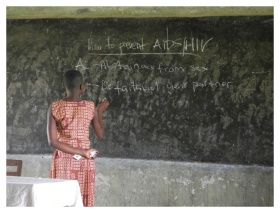 How to prevent AIDS/HIV
A - Abstinence from sex
- Be faithful your partner